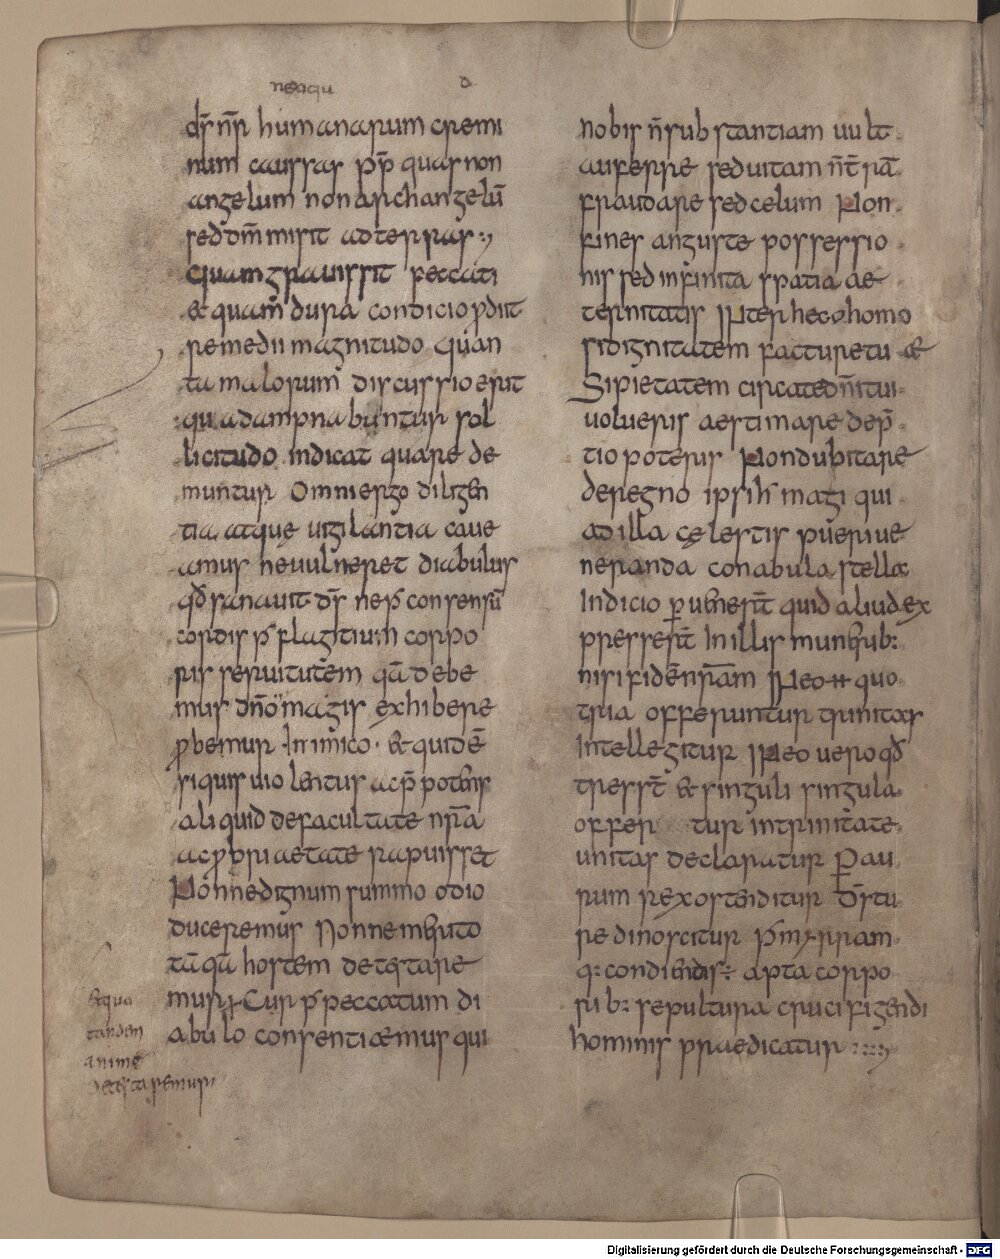 neaqu d
ds̄ nr̄ humanarum cremi
num caussas pp̄ quas non
angelum non archangelū
sed dm̄ misit ad terras:,
Quam gravissit peccati
& quam dura condicio prodiit
remedii magnitudo quan
ta malorum discussio erit
qui adampnabuntur sol
licitudo indicat quare de
muntur Omni ergo diligen
tia atque vigilantia cave
amus ne vulneret diabulus
qd̄ sanavit ds̄ ne p̄ consensū
cordis p̄ flagitium corpo
ris servitutem quā debe
mus dn̄o magis exhibere
probemur inimico · & quidē
siquis violentus ac p̄potens
aliquid de facultate nr̄a
ac propri aetate rapuisset
Nonne dignum summo odio
duceremus Nonne merito
tā quā hostem detestare
mur Cur p̄ peccatum di
abulo consentiaemus qui
& qua
tandem
anime
detestaremur
nobis n̄ substantiam vult
auferre sed vitam n̄ t̄ram
fraudare sed celum Non
fines anguste possessio
nis sed infinita spatia ae
ternitatis Inter hec o homo
si dignitatem facture tu ae
Si pietatem circa te dn̄i tui
volueris aestimare dep̄
tio poteris Non dubitare
de regno ipsi h magi qui
ad illa cęlestis pueri ve
neranda conabula stella
Indicio pervener̄t quid aliud ex
presser̄t In illis munerib:
nisi fidē nr̄am In eo quo
tria offeruntur trinitas
Intellegitur In eo vero qd̄
tres st̄ & singuli singula
offer tur in trinitate
unitas declaratur Per au
rum rex ostenditur Ds̄ tu
re dinoscitur P̄ myrram
q: condiendis: apta corpo
rib: sepultura crucifigendi
hominis praedicatur
Digitalisierung gefördert durch die Deutsche Forschungsgemeinschaft - DFG